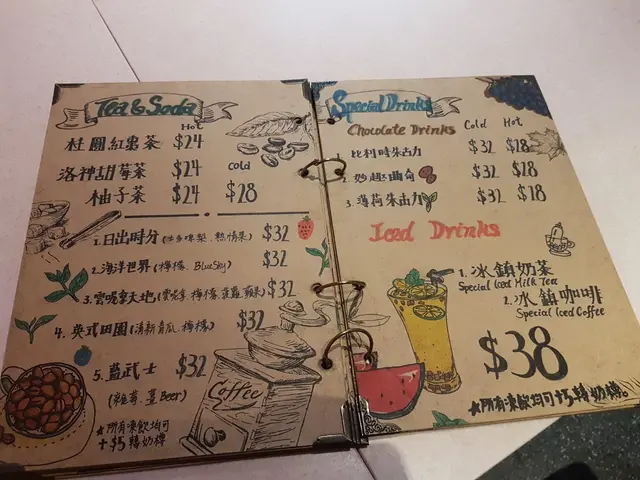 Tea & Soda
Hot
桂圓紅棗茶 $24
洛神甜莓茶 $24 cold
柚子茶 $24 $28
1.日出時分 $32
2.海洋世界 (檸檬, BlueSky) $32
3. $32
4. 英式田園 (清新青瓜, 檸檬) $32
5. 藍武士 $32
Beer)
★所有凍飲均可
+$5轉奶樽
Coffee
Special Drinks
Chocolate Drinks Cold Hot
1. 比利時朱古力 $32 $28
2. 妙趣曲奇 $32 $28
3. 薄荷朱古力 $32 $28
Iced Drinks
1. 冰鎮奶茶
Special Iced Milk Tea
2. 冰鎮咖啡
Special Iced Coffee
$38
★所有凍飲均可+$5轉奶樽。